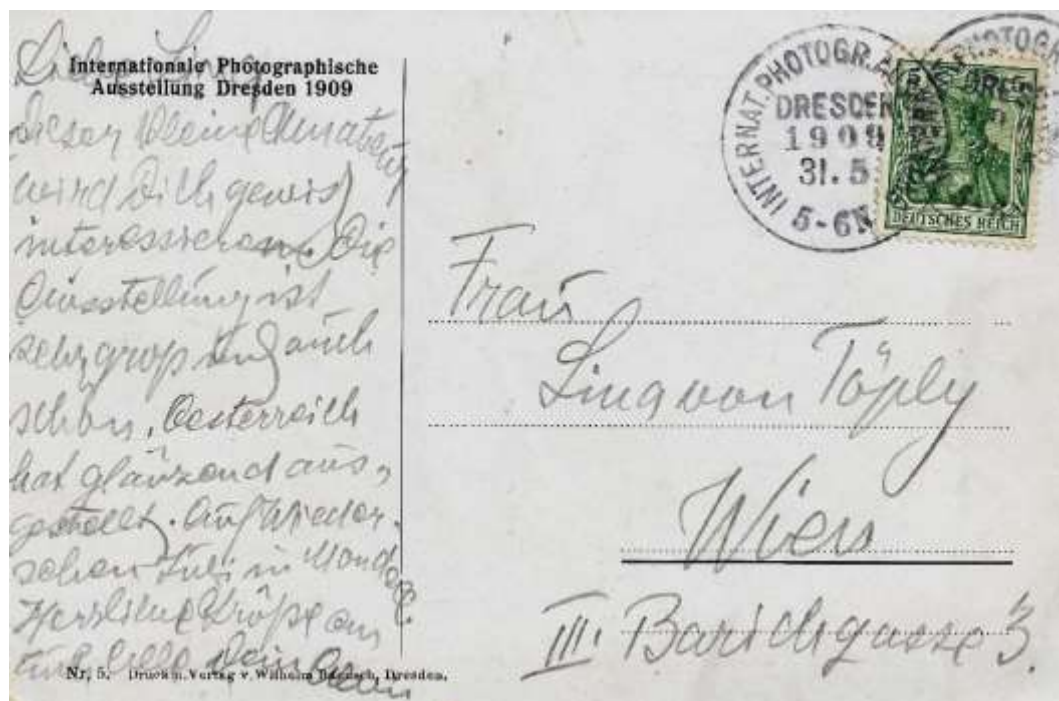 Liebe Lina
Internationale Photographische
Ausstellung Dresden 1909
dieser kleine
wird dich gewiss
interessieren. Die
Ausstellung ist
sehr gross und auch
schön, Oesterreich
hat glänzend aus-
gestellt. Auf Wieder-
sehen Juli in
Herzliche Grüße an
Euch alle Dein
Nr. 5. Druck u. Verlag v. Wilhelm Dresden.
INTERNAT. PHOTOGR. A
DRESDEN
1909
31. 5
5-6N
PHOTOGR
DRES
DEUTSCHES REICH
Frau
Lina von Töply
Wien
III. Barichgasse 3.